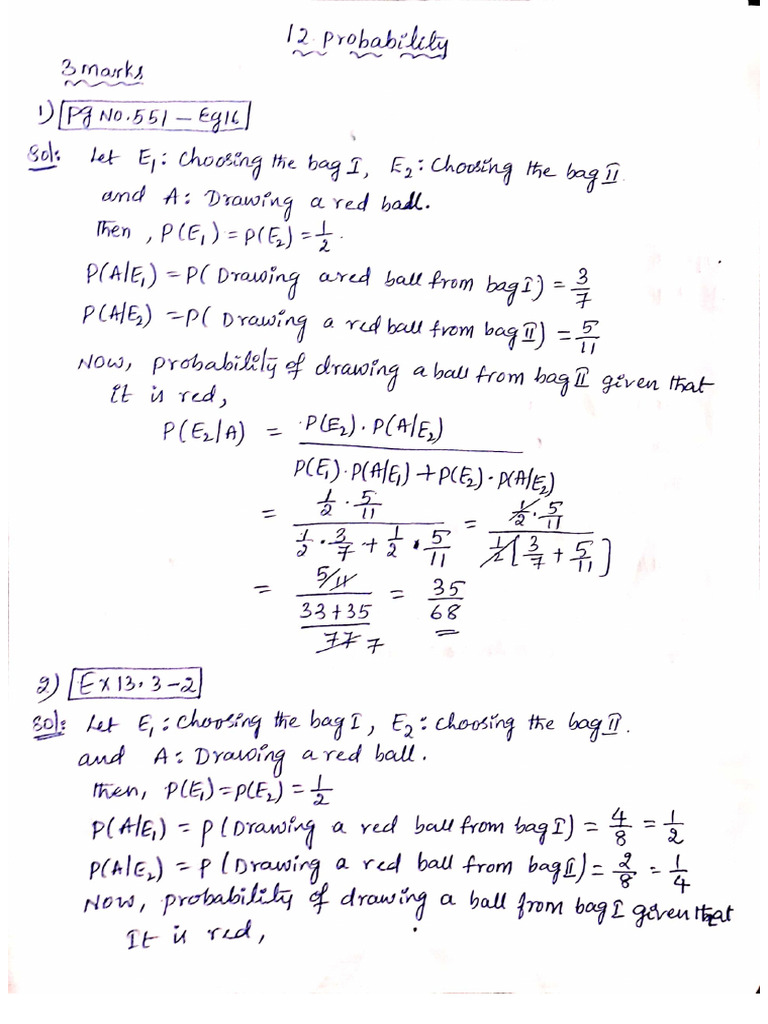 12 probability
3 marks
1) Pg No. 551 - Eg 16
Sol: Let E₁: choosing the bag I, E₂: choosing the bag II.
and A: Drawing a red ball.
Then, P(E₁) = P(E₂) = 1/2.
P(A/E₁) = P( Drawing a red ball from bag I) = 3/7
P(A/E₂) = P( Drawing a red ball from bag II) = 5/11
Now, probability of drawing a ball from bag II given that
it is red,
P(E₂/A) = P(E₂) . P(A/E₂) / P(E₁) . P(A/E₁) + P(E₂) . P(A/E₂)
= 1/2 . 5/11 / 1/2 . 3/7 + 1/2 . 5/11 = 1/2 . 5/11 / 1/2 [3/7 + 5/11]
= 5/11 / 33+35 / 77 7 = 35/68
2) Ex 13.3-2
Sol: Let E₁: choosing the bag I, E₂: choosing the bag II.
and A: Drawing a red ball.
Then, P(E₁) = P(E₂) = 1/2
P(A/E₁) = P (Drawing a red ball from bag I) = 4/8 = 1/2
P(A/E₂) = P (Drawing a red ball from bag II) = 2/8 = 1/4
Now, probability of drawing a ball from bag I given that
It is red,